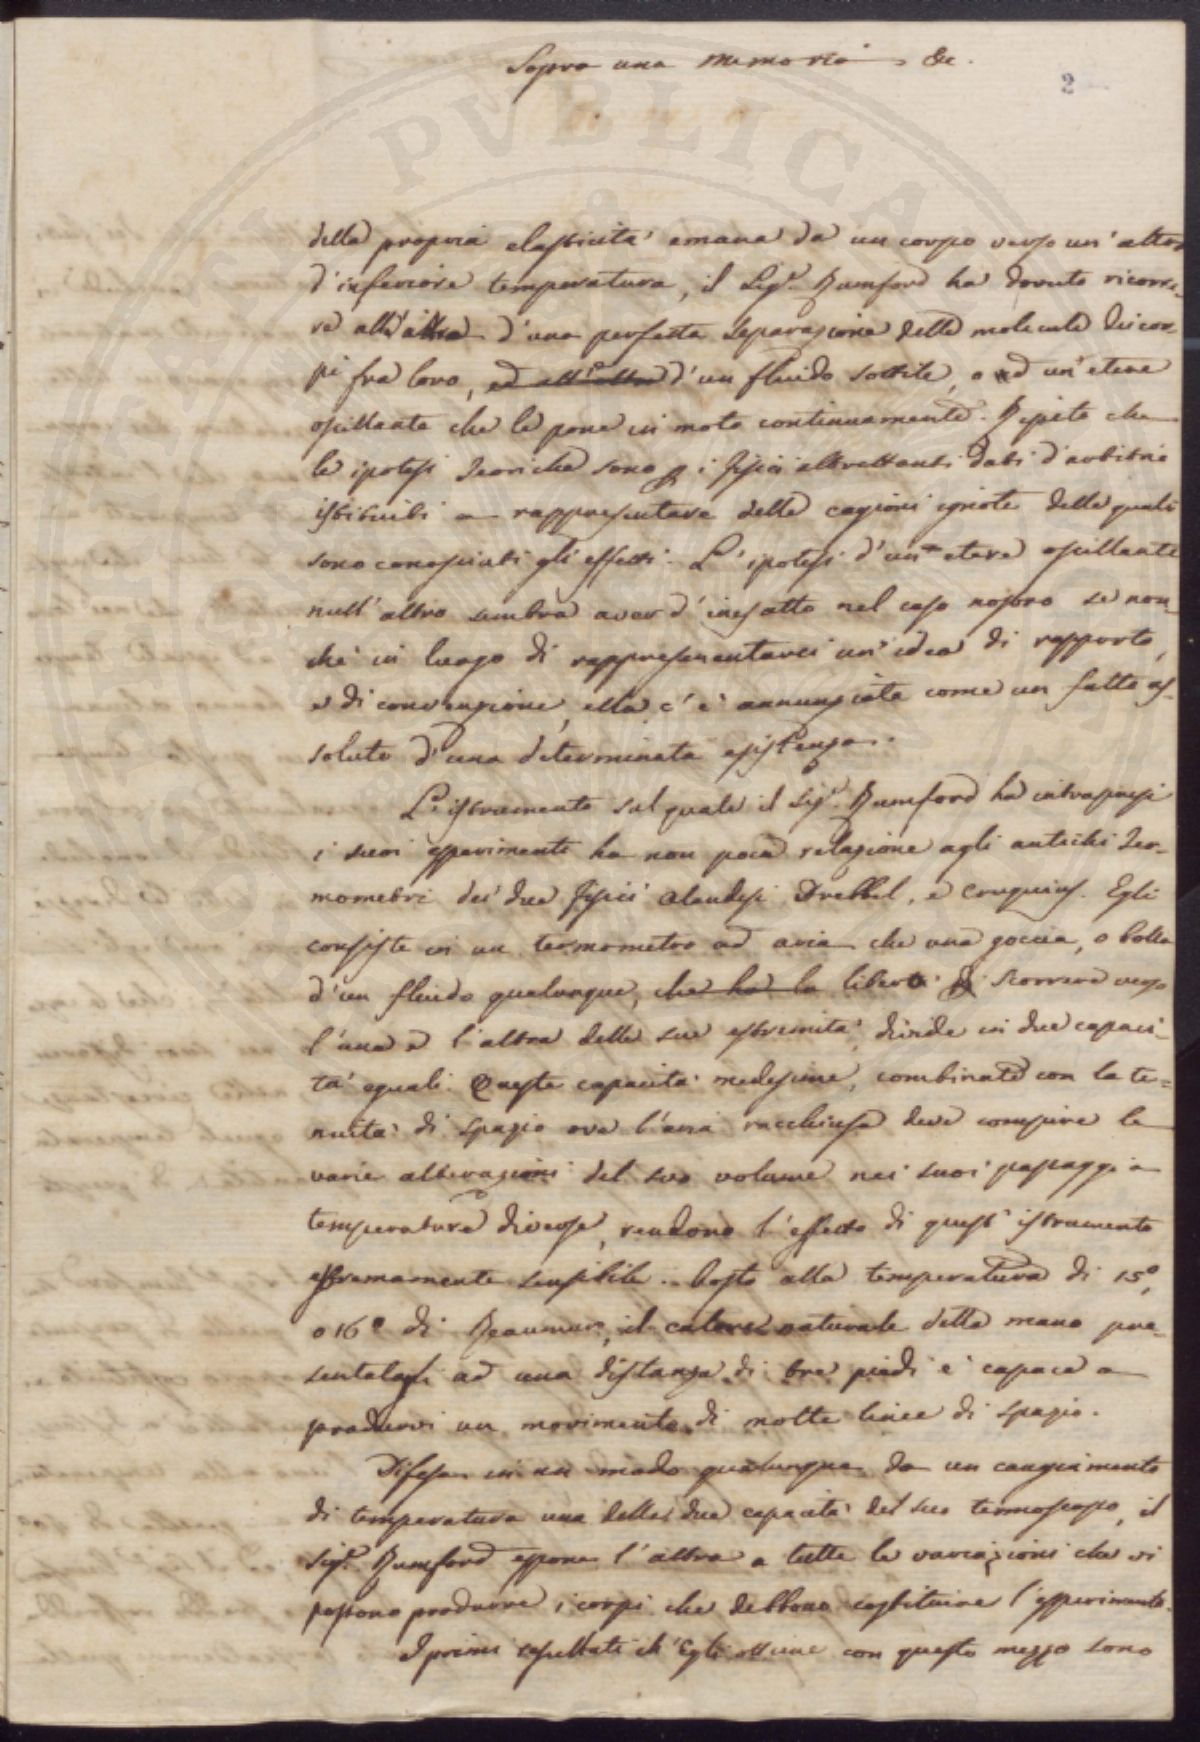 Sopra una memoria &c.
2
della propria elasticità emana da un corpo verso un' altro
d'inferiore temperatura, il Sig.r Rumford ha dovuto ricorre-
re all'altra d'una perfetta separazione delle molecule dei cor-
pi fra loro, ed all'altra d'un fluido sottile, o ad un' etere
oscillante che le pone in moto continuamente. Repito che
le ipotesi teoriche sono p i Fisici altrettanti dati d'arbitrio
istituiti a rappresentare delle cagioni ignote delle quali
sono conosciuti gli effetti. L'ipotesi d'un etere oscillante
null'altro sembra aver d'inesatto nel caso nostro se non
che in luogo di rappresentarci un' idea di rapporto,
e di convenzione, ella c'è annunziata come un fatto as-
soluto d'una determinata esistenza.
L'istrumento sul quale il Sig.r Rumford ha intrapresi
i suoi esperimenti ha non poca relazione agli antichi Ter-
mometri dei due Fisici Olandesi Drebbel, e Cruquius. Egli
consiste in un termometro ad aria che una goccia, o bolla
d'un fluido qualunque, che ha la libero di scorrere verso
l'una e l'altra delle sue estremità, divide in due capaci-
tà eguali. Queste capacità medesime, combinate con la te-
nuità di spazio ove l'aria racchiusa deve compire le
varie alterazioni del suo volume nei suoi passaggi a
temperature diverse, rendono l'effetto di quest' istrumento
estremamente sensibile. Posto alla temperatura di 15°,
o 16° di Reaumur, il calore naturale della mano pre-
sentatagli ad una distanza di tre piedi è capace a
produrvi un movimento di molte linee di spazio.
Difesa in un modo qualunque da un cangiamento
di temperatura una delle due capacità del suo termoscopio, il
Sig.r Rumford espone l'altra a tutte le variazioni che vi
possono produrre i corpi che debbono costituire l'esperimento.
I primi resultati ch'Egli ottiene con questo mezzo sono